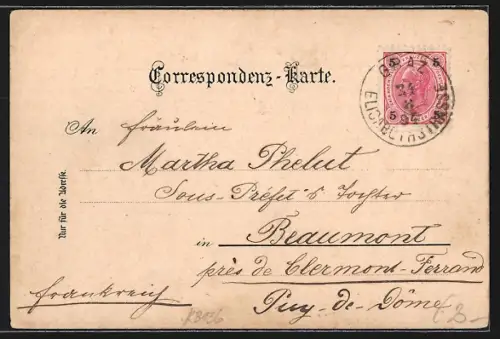 Correspondenz-Karte.
GRAZ
ELISABETHSTRASSE
5 5
5
An Fräulein
Martha Phelut
Sous-Préfet's Tochter
in Beaumont
près de Clermont-Ferrand
Frankreich
Puy-de-Dôme
Nur für die Adresse.